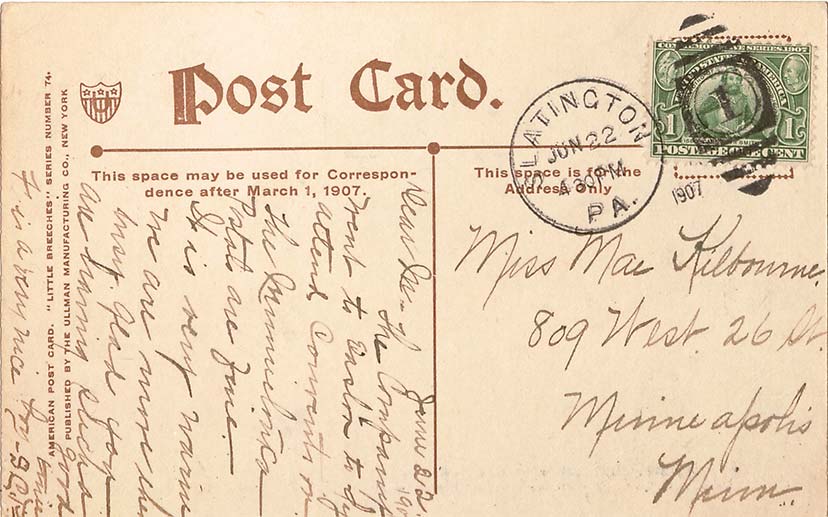 Post Card.
This space may be used for Correspon-
dence after March 1, 1907.
This space is for the
Address Only
AMERICAN POST CARD. "LITTLE BREECHES" SERIES NUMBER 74.
PUBLISHED BY THE ULLMAN MANUFACTURING CO., NEW YORK
COMMEMORATIVE SERIES 1907
UNITED STATES OF AMERICA
1 1
POSTAGE ONE CENT
1
SLATINGTON
JUN 22
4 30 PM
PA.
1907
Miss Mae Kilbourne.
809 West. 26 St.
Minneapolis
Minn
June 22
Dear
The Company
went to to
attend Convention
The
are fine.
It is very warm
we are more than
busy. Glad you
are having such
good
It is a very nice